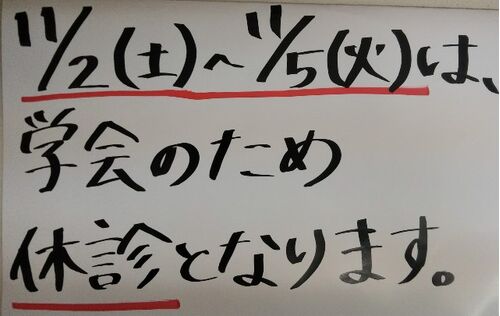 11/2(土)~11/5(火)は、
学会のため
休診となります。